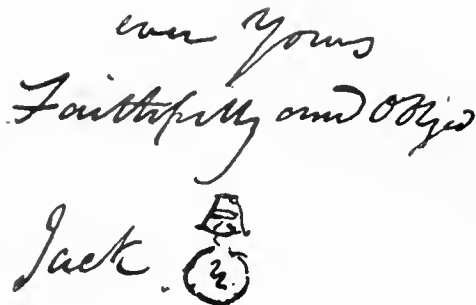 ever Yours
Faithfully and Oblig'd
Jack.